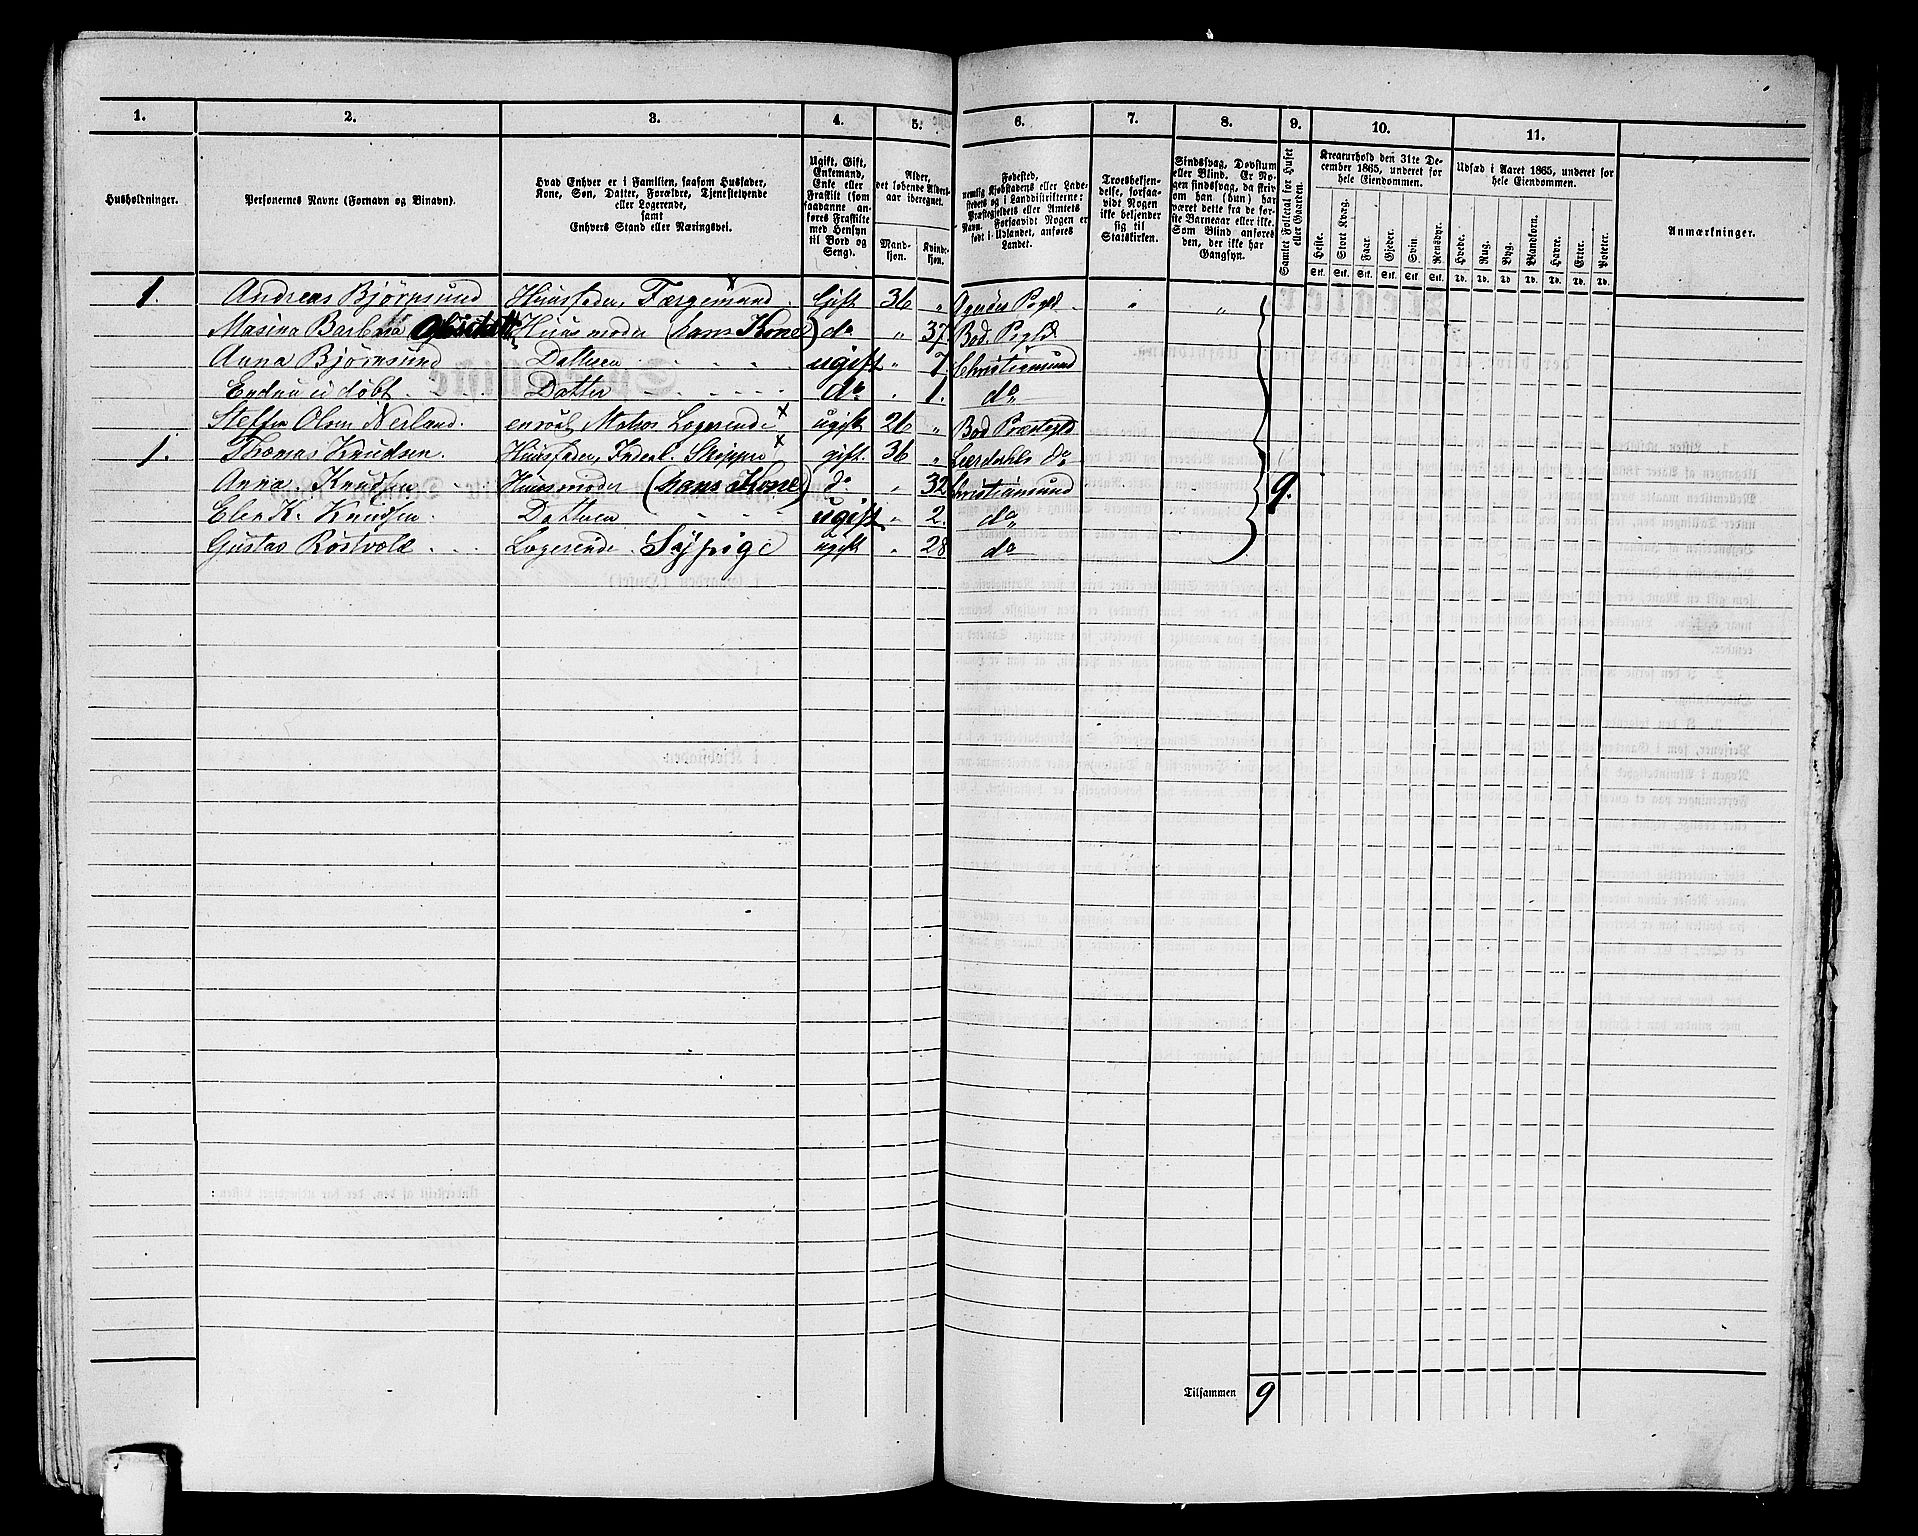 1. 2. 3. 4. 5. 6. 7. 8. 9. 10. 11.
Husholdninger.
Personernes Navne (Fornavn og Binavn).
Hvad Enhver er i Familien, saasom Husfader,
Kone, Søn, Datter, Forældre, Tjenstetyende
eller Logerende,
samt
Enhvers Stand eller Næringsvei.
Ugift, Gift,
Enkemand,
Enke eller
Fraskilt (som
saadanne an-
føres Fraskilte
med Hensyn
til Bord og
Seng).
Alder,
det løbende Alders-
aar iberegnet.
Mand-
kjøn.
Kvinde-
kjøn.
Fødested,
nemlig Kjøbstadens eller Lade-
stedets og i Landdistrikterne:
Præstegjeldets eller Amtets
Navn. Forsaavidt Nogen er
født i Udlandet, anføres
Landet.
Troesbekjen-
delse, forsaa-
vidt Nogen ikke
bekjender
sig til
Statskirken.
Sindssvag, Døvstum
eller Blind. Er No-
gen sindssvag, da skriv
om han (hun) har
været dette fra de før-
ste Barneaar eller ikke.
Som Blind anføres
den, der ikke har
Gangsyn.
Samlet Folketal for Huset
eller Gaarden.
Kreaturhold den 31te De-
cember 1865, underet for
hele Eiendommen.
Heste. Stort Kvæg. Faar. Gjeder. Svin. Rensdyr.
Stk. Stk. Stk. Stk. Stk. Stk.
Udsæd i Aaret 1865, underet for
hele Eiendommen.
Hvede. Rug. Byg. Blandkorn. Havre. Erter. Poteter.
Td. Td. Td. Td. Td. Td. Td.
Anmærkninger.
1. Andreas Bjørnsund Huusfader, Færgemand Gift 36 " Pgld " "
Masina Barbra Huusmoder (hans Kone) do " 37 Bod. Pgld
Anna Bjørnsund Datteren ugift " 7 Christiansund
Endnu ei døbt Datter do " 1. do
Steffen Olsen Nerland. Logerende ugift 26 " Bod Præstegld
1. Thomas Knudsen. Huusfader, Skipper gift. 36 " Lærdahls do
Anna Knudsen Huusmoder (hans Kone) do " 32 Christiansund 9.
K. Knudsen. Datteren ugift " 2. do
Gustav Røstvold Logerende Sypige ugift " 28 do
Tilsammen 9